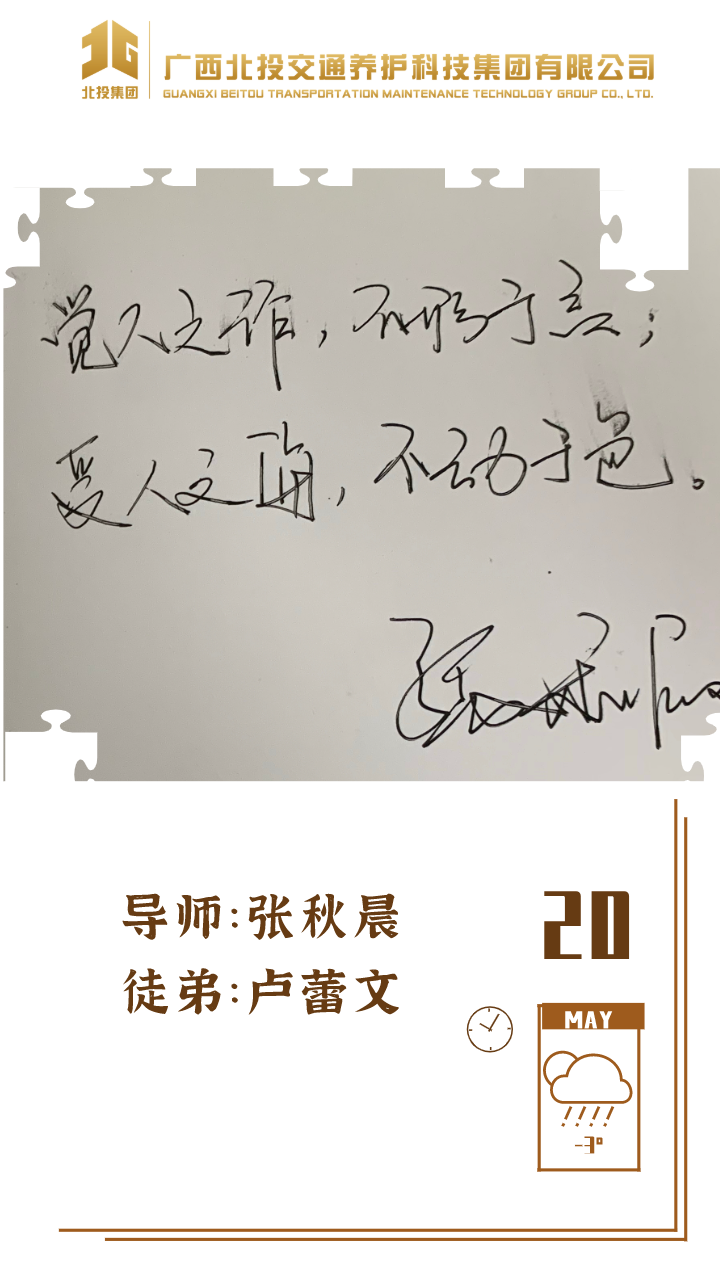 北投集团
广西北投交通养护科技集团有限公司
GUANGXI BEITOU TRANSPORTATION MAINTENANCE TECHNOLOGY GROUP CO., LTD.
觉人之诈，不形于言；
受人之侮，不动于色。
张秋晨
导师:张秋晨
徒弟:卢蕾文
20
MAY
-3°